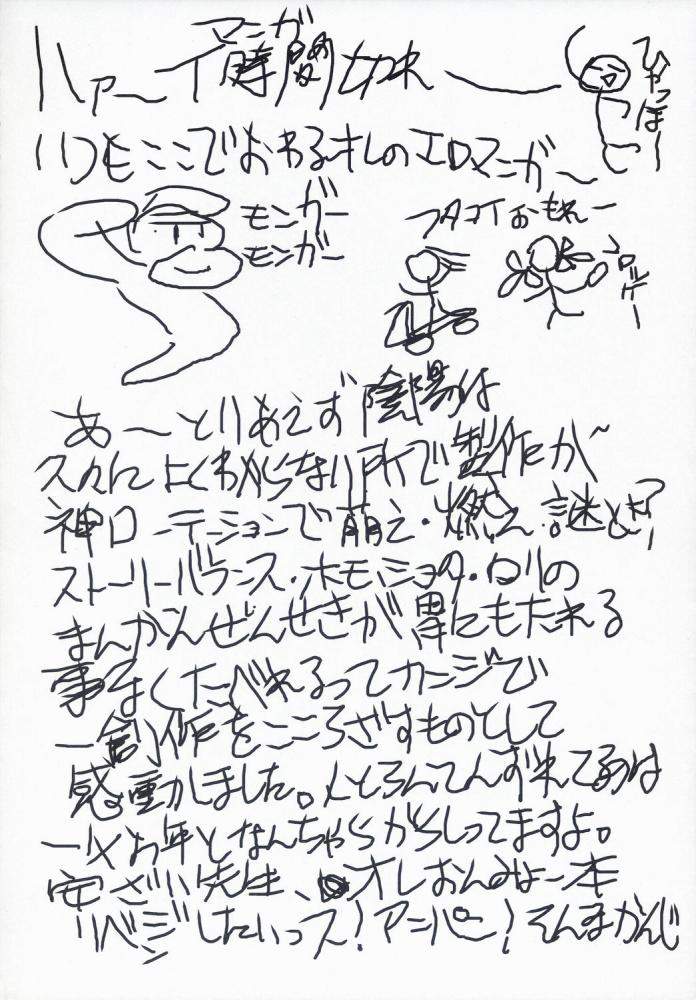 マニガ
ハァーイ 時間
ひゃっほー
いつもここでおわるオレのエロマニガー
モンガー
モンガー
フタコイおもれー
あーとりあえず陰陽は
久々によくわからない所で製作が
神ローテーションで萌え・燃え・謎とき?
ストーリーバランス・ホモ・ショタ・ロリの
まんかんぜんせきが胃にもたれる
事なくたべれるってカンジで
一創作をこころざすものとして
感動しました。
ろんてんずれてるのは
お年となんちゃらがらしってますよ。
安ざい先生、オレおんみょー本
リベンジしたいっス!アニパー!そんなかんじ